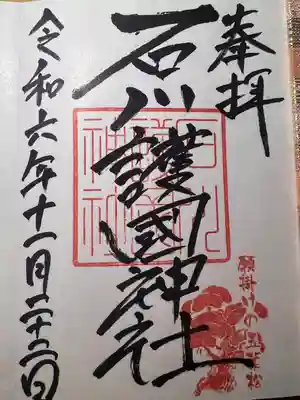 奉拝
石川護國神社
令和六年十一月二十二日
願掛けの